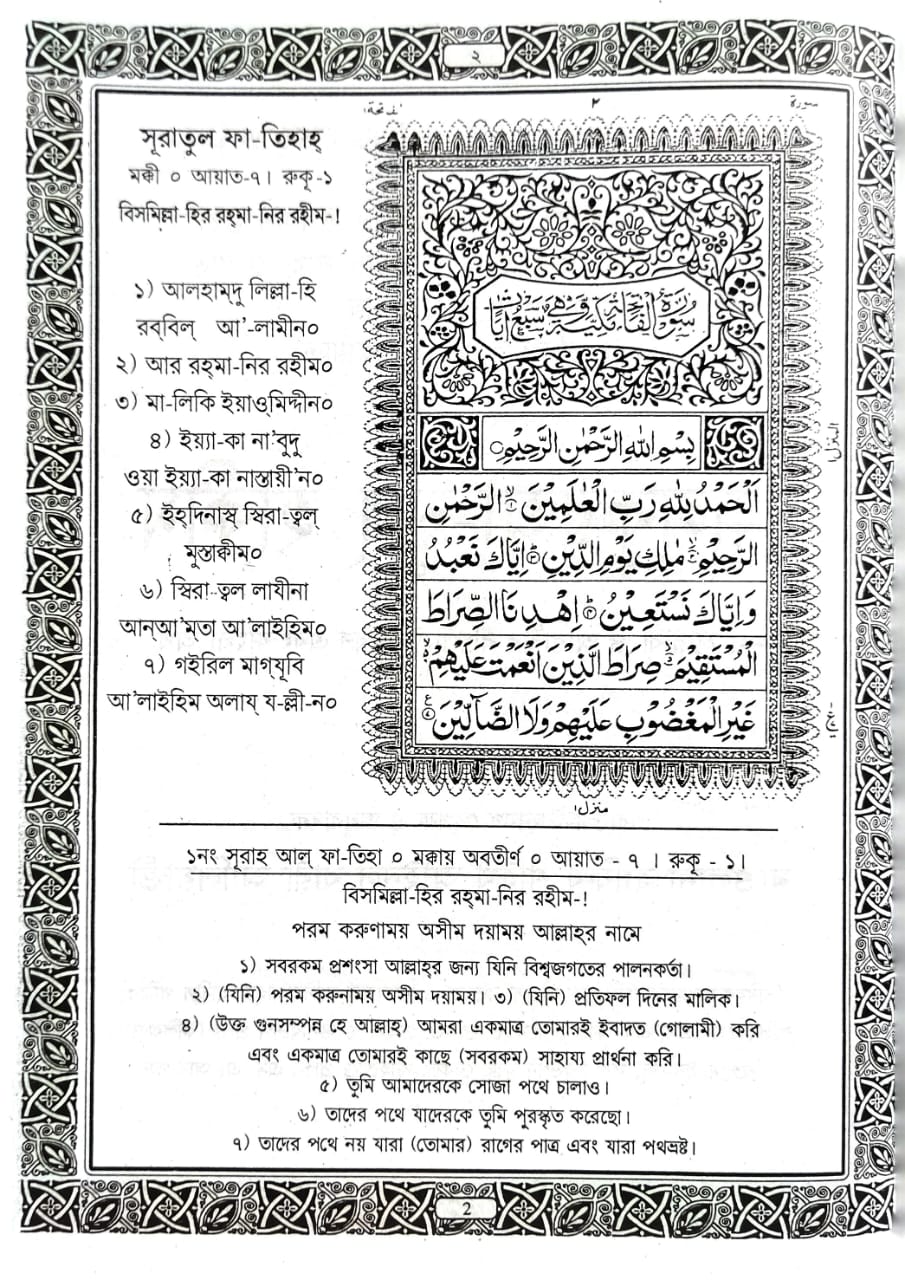 ২
سورة
٢
الفاتحة
সূরাতুল ফা-তিহাহ্
মক্কী ০ আয়াত-৭। রুকূ-১
বিসমিল্লা-হির রহ্‌মা-নির রহীম-!
১) আলহাম্‌দু লিল্লা-হি
রব্‌বিল্ আ'-লামীন০
২) আর রহ্‌মা-নির রহীম০
৩) মা-লিকি ইয়াওমিদ্দীন০
৪) ইয়্যা-কা না'বুদু
ওয়া ইয়্যা-কা নাস্তায়ী'ন০
৫) ইহ্‌দিনাস্ব্ স্বিরা-ত্বল্
মুস্তাক্বীম০
৬) স্বিরা-ত্বল লাযীনা
আন্‌আ'ম্‌তা আ'লাইহিম০
৭) গইরিল মাগযূবি
আ'লাইহিম অলায্ য-ল্লী-ন০
سُوْرَةُ الْفَاتِحَةِ مَكِّيَّةٌ وَّهِيَ سَبْعُ اٰيَاتٍ
بِسْمِ اللّٰهِ الرَّحْمٰنِ الرَّحِيْمِ
اَلْحَمْدُ لِلّٰهِ رَبِّ الْعٰلَمِيْنَ ۙ۱ الرَّحْمٰنِ
الرَّحِيْمِ ۙ۲ مٰلِكِ يَوْمِ الدِّيْنِ ۳ اِيَّاكَ نَعْبُدُ
وَاِيَّاكَ نَسْتَعِيْنُ ۴ اِهْدِنَا الصِّرَاطَ
الْمُسْتَقِيْمَ ۙ۵ صِرَاطَ الَّذِيْنَ اَنْعَمْتَ عَلَيْهِمْ ۙ۶
غَيْرِ الْمَغْضُوْبِ عَلَيْهِمْ وَلَا الضَّآلِّيْنَ ۷
منزل۱
১নং সূরাহ আল্ ফা-তিহা ০ মক্কায় অবতীর্ণ ০ আয়াত - ৭ । রুকূ - ১।
বিসমিল্লা-হির রহ্‌মা-নির রহীম-!
পরম করুণাময় অসীম দয়াময় আল্লাহ্‌র নামে
১) সবরকম প্রশংসা আল্লাহ্‌র জন্য যিনি বিশ্বজগতের পালনকর্তা।
২) (যিনি) পরম করুনাময় অসীম দয়াময়। ৩) (যিনি) প্রতিফল দিনের মালিক।
৪) (উক্ত গুনসম্পন্ন হে আল্লাহ্) আমরা একমাত্র তোমারই ইবাদত (গোলামী) করি
এবং একমাত্র তোমারই কাছে (সবরকম) সাহায্য প্রার্থনা করি।
৫) তুমি আমাদেরকে সোজা পথে চালাও।
৬) তাদের পথে যাদেরকে তুমি পুরস্কৃত করেছো।
৭) তাদের পথে নয় যারা (তোমার) রাগের পাত্র এবং যারা পথভ্রষ্ট।
2